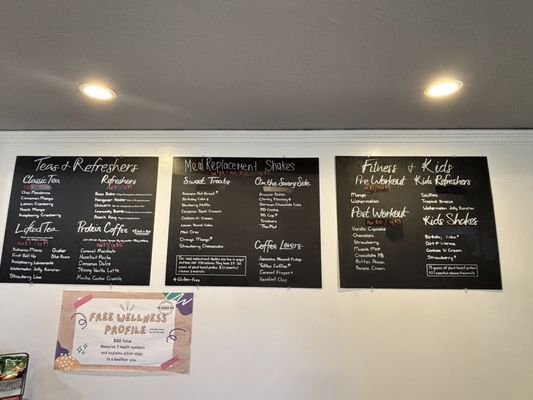 Teas & Refreshers
Classic Tea
Chai Mandarina
Cinnamon Mango
Lemon Cranberry
Peach Mango
Raspberry Cranberry
Lifted Tea
Bahama Mama
Fruit Roll Up
Raspberry Lemonade
Watermelon Jolly Rancher
Strawberry Lava
Gusher
Blue Rose
Refreshers
Bora Bora
Hangover Healer
Unicorn
Immunity Bomb
Peach Ring
Protein Coffee
Caramel Macchiato
Hazelnut Mocha
Cinnamon Dolce
Skinny Vanilla Latte
Mocha Cookie Crumble
Meal Replacement Shakes
Sweet Treats
Banana Nut Bread*
Birthday Cake
Blueberry Muffin
Cinnamon Toast Crunch
Cookies n Cream
Mint Oreo
Lemon Pound Cake
Orange Mango*
Strawberry Cheesecake
*Gluten-free
On the Savory Side
Brownie Batter
German Chocolate Cake
PB Cookie
PB Cup*
Snickers
Coffee Lovers
Banana Mocha Fudge
Toffee Coffee*
Caramel Frappe
Hazelnut Chip
Fitness & Kids
Pre Workout
Mango
Watermelon
Post Workout
Vanilla Cupcake
Chocolate
Strawberry
Muscle Mint
Chocolate PB
Butter Pecan
Banana Cream
Kids Refreshers
Skittles
Tropical Breeze
Watermelon Jolly Rancher
Kids Shakes
Birthday Cake*
Dirt n' Worms
Cookies 'n Cream
Strawberry*
FREE WELLNESS
PROFILE
$100 Value
Measures 9 health numbers
and explains action steps
to a healthier you